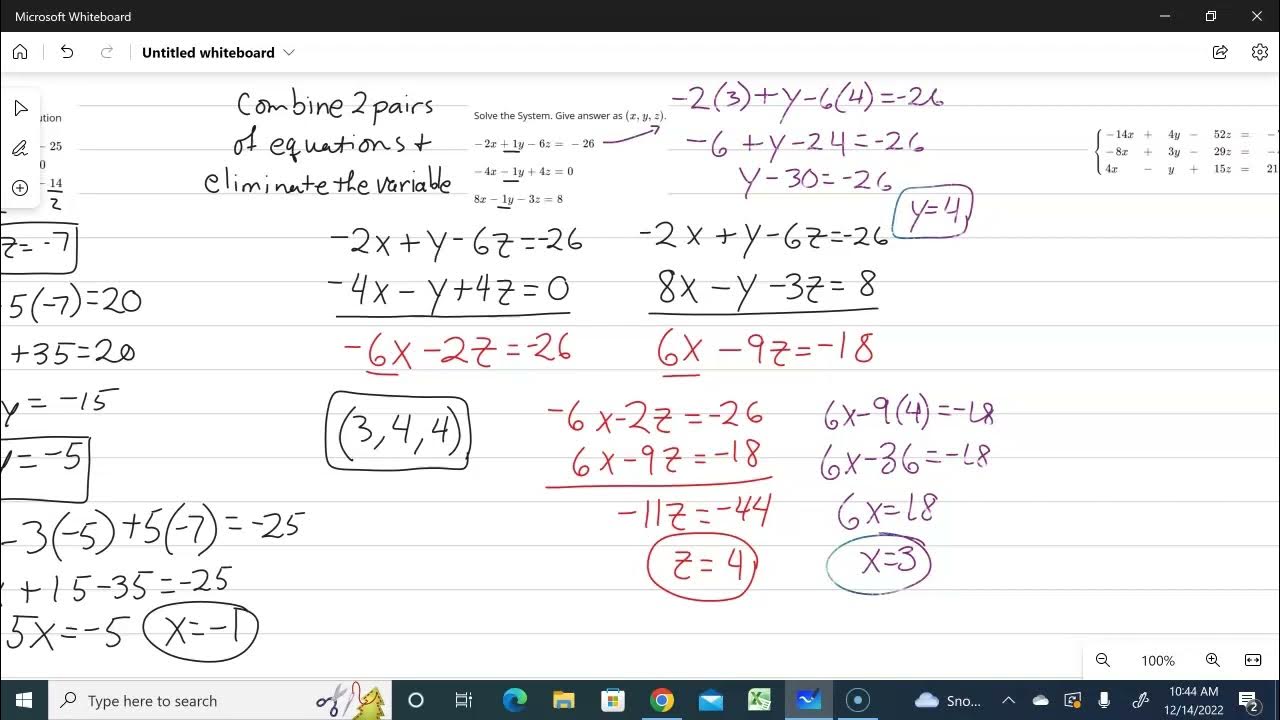 Microsoft Whiteboard
Untitled whiteboard
ution
- 25
0
- 14/2
z = -7
5(-7) = 20
+35 = 20
y = -15
y = -5
-3(-5) + 5(-7) = -25
+15 - 35 = -25
5x = -5
x = -1
Combine 2 pairs
of equations +
eliminate the variable
Solve the System. Give answer as (x, y, z).
−2x + 1y − 6z = − 26
−4x − 1y + 4z = 0
8x − 1y − 3z = 8
-2(3) + y - 6(4) = -26
-6 + y - 24 = -26
y - 30 = -26
y = 4
-2x + y - 6z = -26
-4x - y + 4z = 0
-6x - 2z = -26
-2x + y - 6z = -26
8x - y - 3z = 8
6x - 9z = -18
(3, 4, 4)
-6x - 2z = -26
6x - 9z = -18
-11z = -44
z = 4
6x - 9(4) = -18
6x - 36 = -18
6x = 18
x = 3
−14x + 4y − 52z = −
−8x + 3y − 29z = −
4x − y + 15z = 21
100%
Type here to search
Sno...
10:44 AM
12/14/2022
2